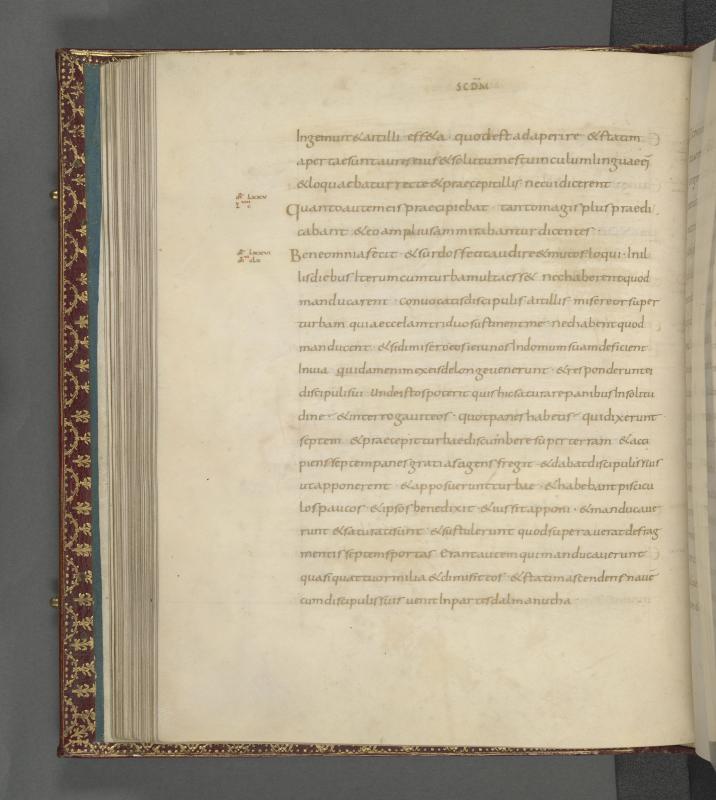 SCDM
Ingemuit & ait illi eff&a quod est adaperire & statim
apertae sunt aures eius & solutum est uinculum linguae ei
& loquaebatur recte & praecepit illis ne cui dicerent
LXXV
Quanto autem eis praecipiebat · tanto magis plus praedi
cabant & eo amplius ammirabantur dicentes ·
LXXVI
Bene omnia fecit · & surdos fecit audire & mutos loqui · In il
lis diebus Iterum cum turba multa ess& nec haberent quod
manducarent · conuocatis discipulis ait illis misereor super
turbam quia ecce iam triduo sustinent me nec habent quod
manducent · & si dimisero eos ieiunos In domum suam deficient
In uia quidam enim ex eis de longe uenerunt · & responderunt ei
discipuli sui unde istos poterit quis hic saturare panibus In solitu
dine · & interrogauit eos · quot panes habetis qui dixerunt
septem & praecepit turbae discumbere super terram & acci
piens septem panes gratias agens fregit · & dabat discipulis suis
ut apponerent & apposuerunt turbae · & habebant piscicu
los paucos & ipsos benedixit & iussit apponi · & manducaue
runt & saturati sunt & sustulerunt quod superauerat de frag
mentis septem sportas Erant autem qui manducauerunt
quasi quattuor milia & dimisit eos & statim ascendens nauē
cum discipulis suis uenit In partes dalmanutha